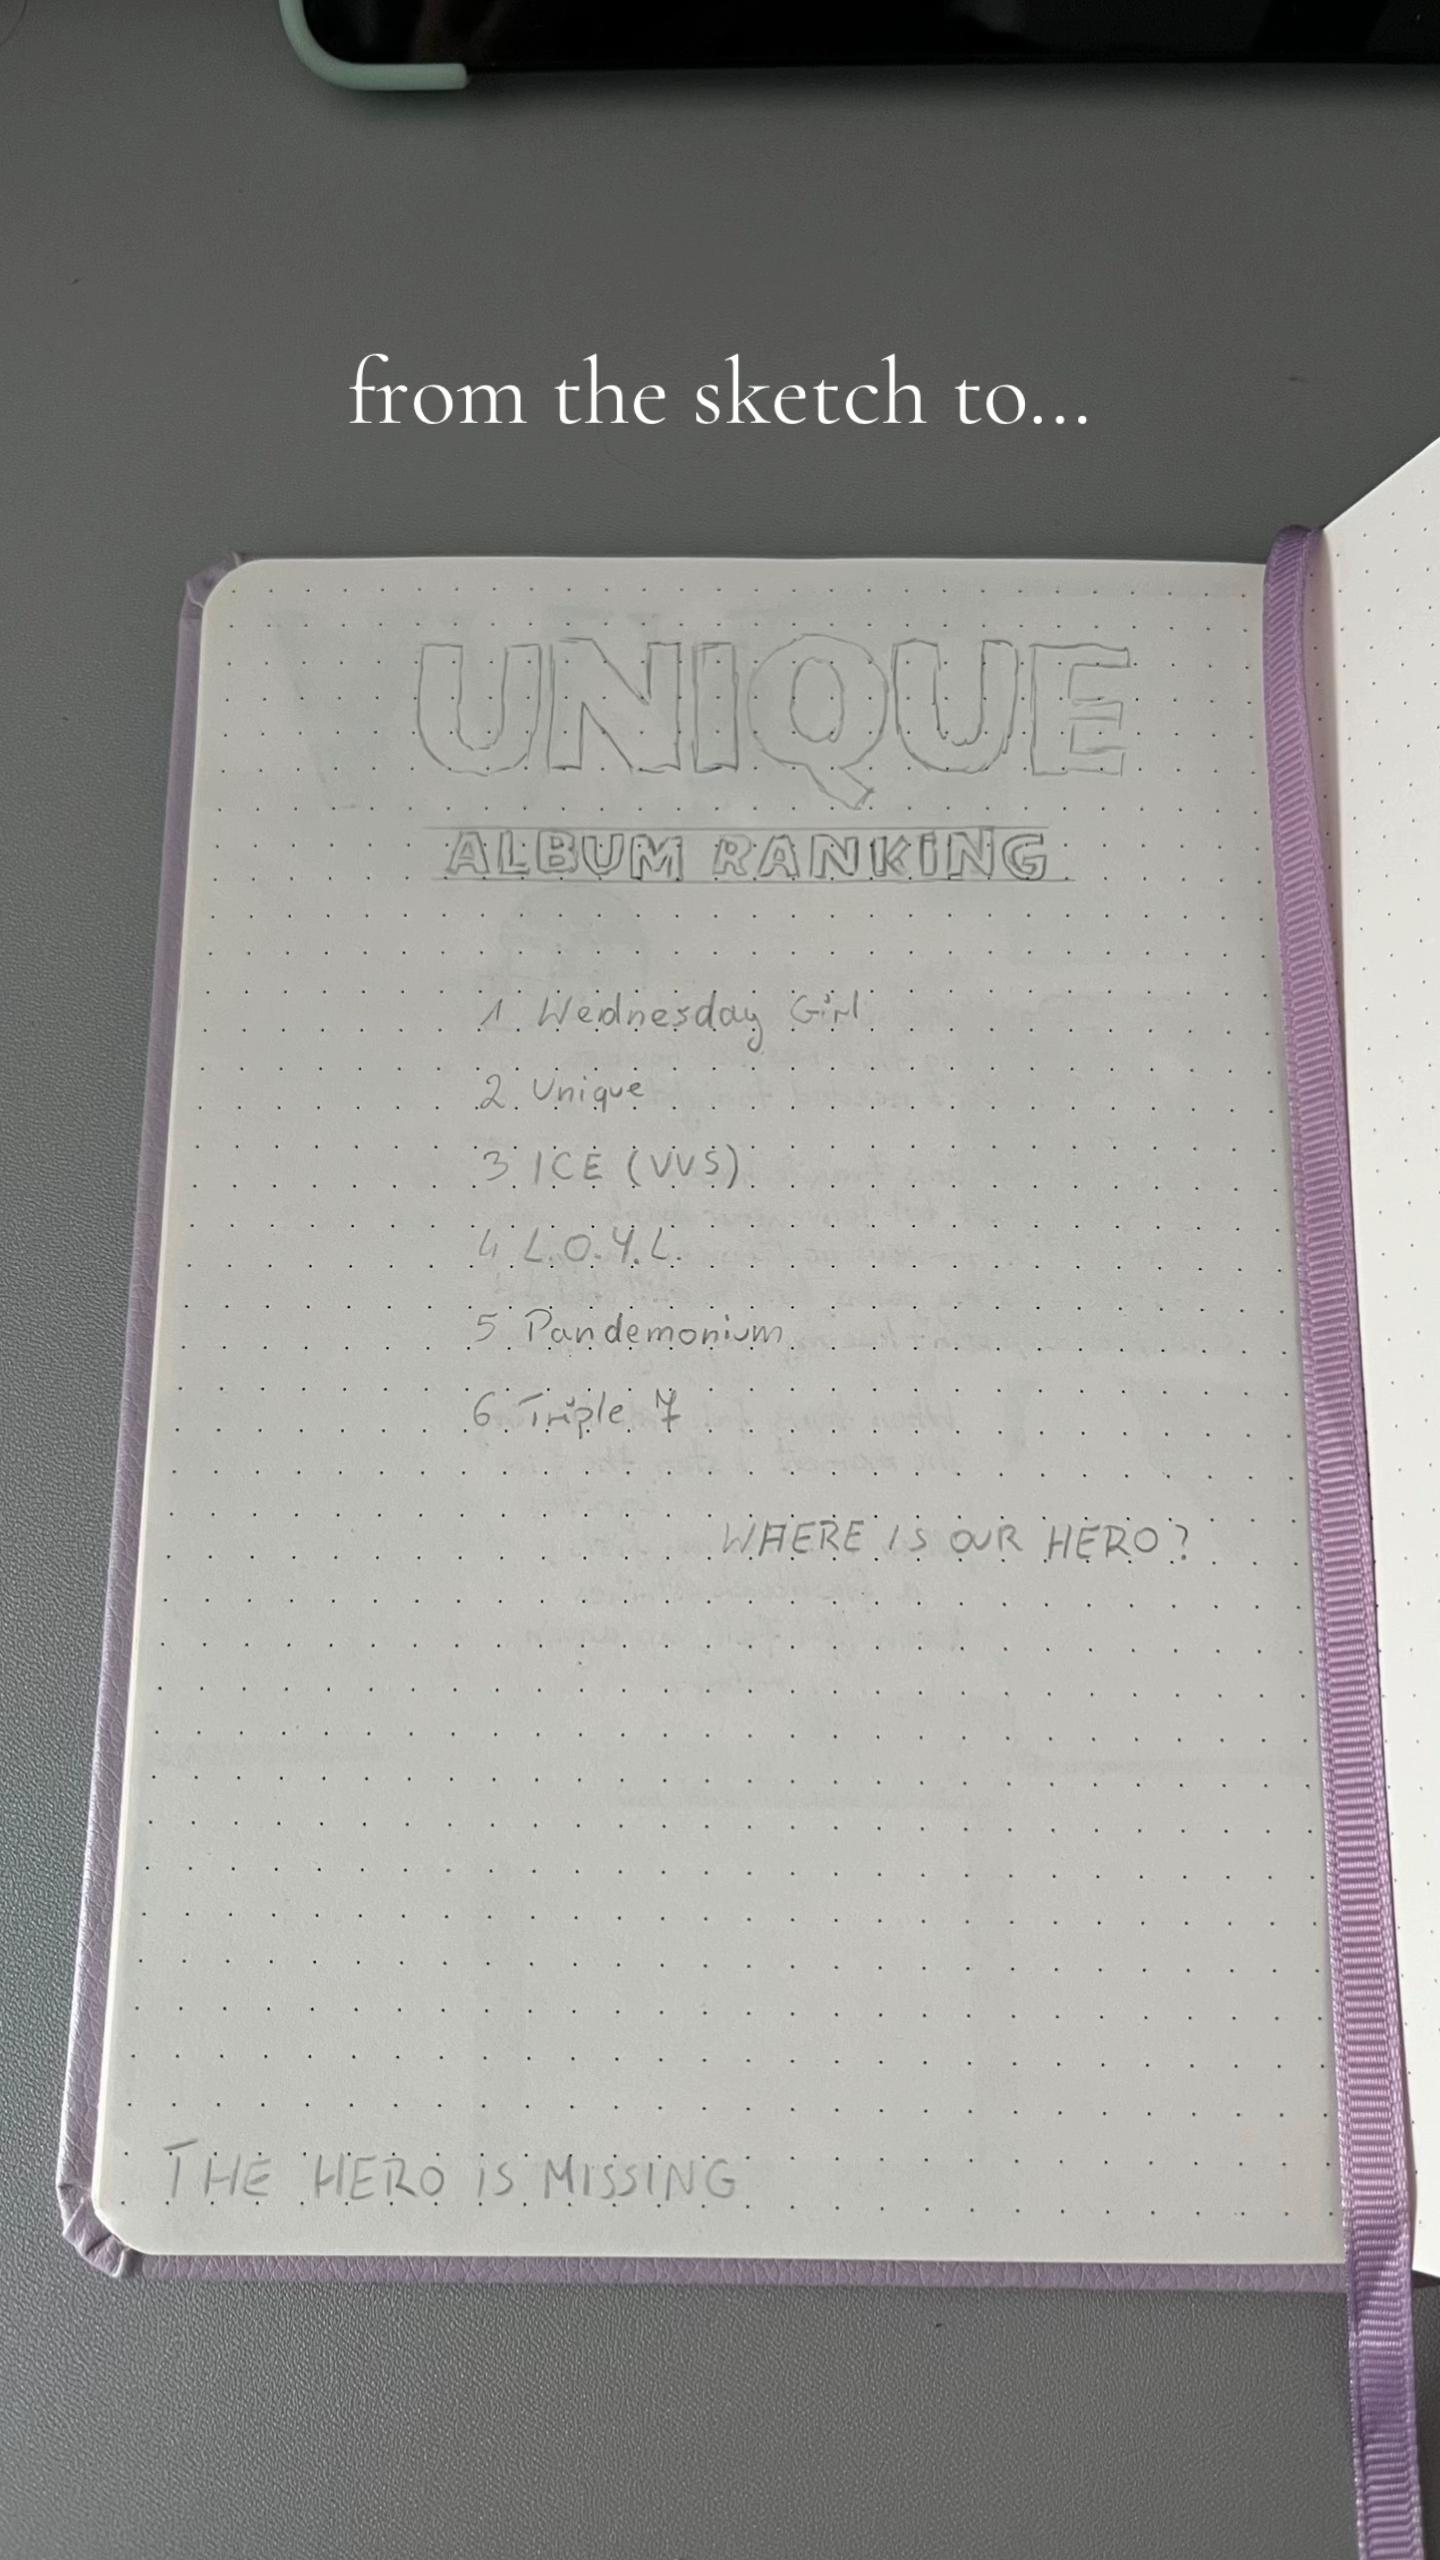 from the sketch to...
UNIQUE
ALBUM RANKING
1 Wednesday Girl
2 Unique
3 ICE (VVS)
4 L.O.Y.L.
5 Pandemonium
6 Triple 7
WHERE IS OUR HERO?
THE HERO IS MISSING